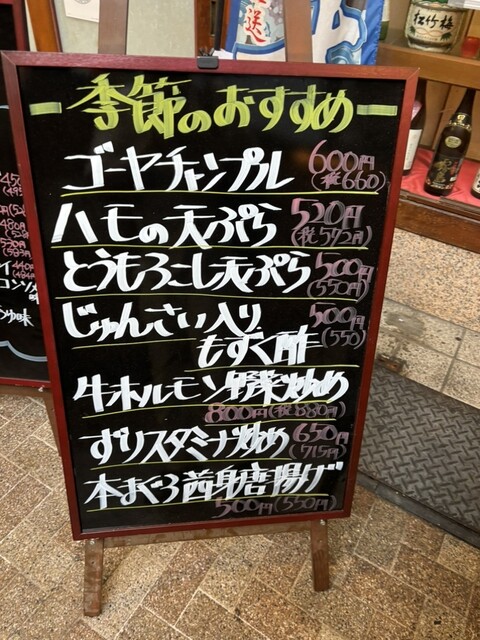 季節のおすすめ
ゴーヤチャンプル 600円
(税660)
ハモの天ぷら 520円
(税572円)
とうもろこし天ぷら 500円
(550円)
じゅんさい入り 500円
もずく酢 (550)
牛ホルモン野菜炒め
800円(税880円)
ずりスタミナ炒め 650円
(715円)
本まぐろ 身唐揚げ
500円(550円)
松竹梅